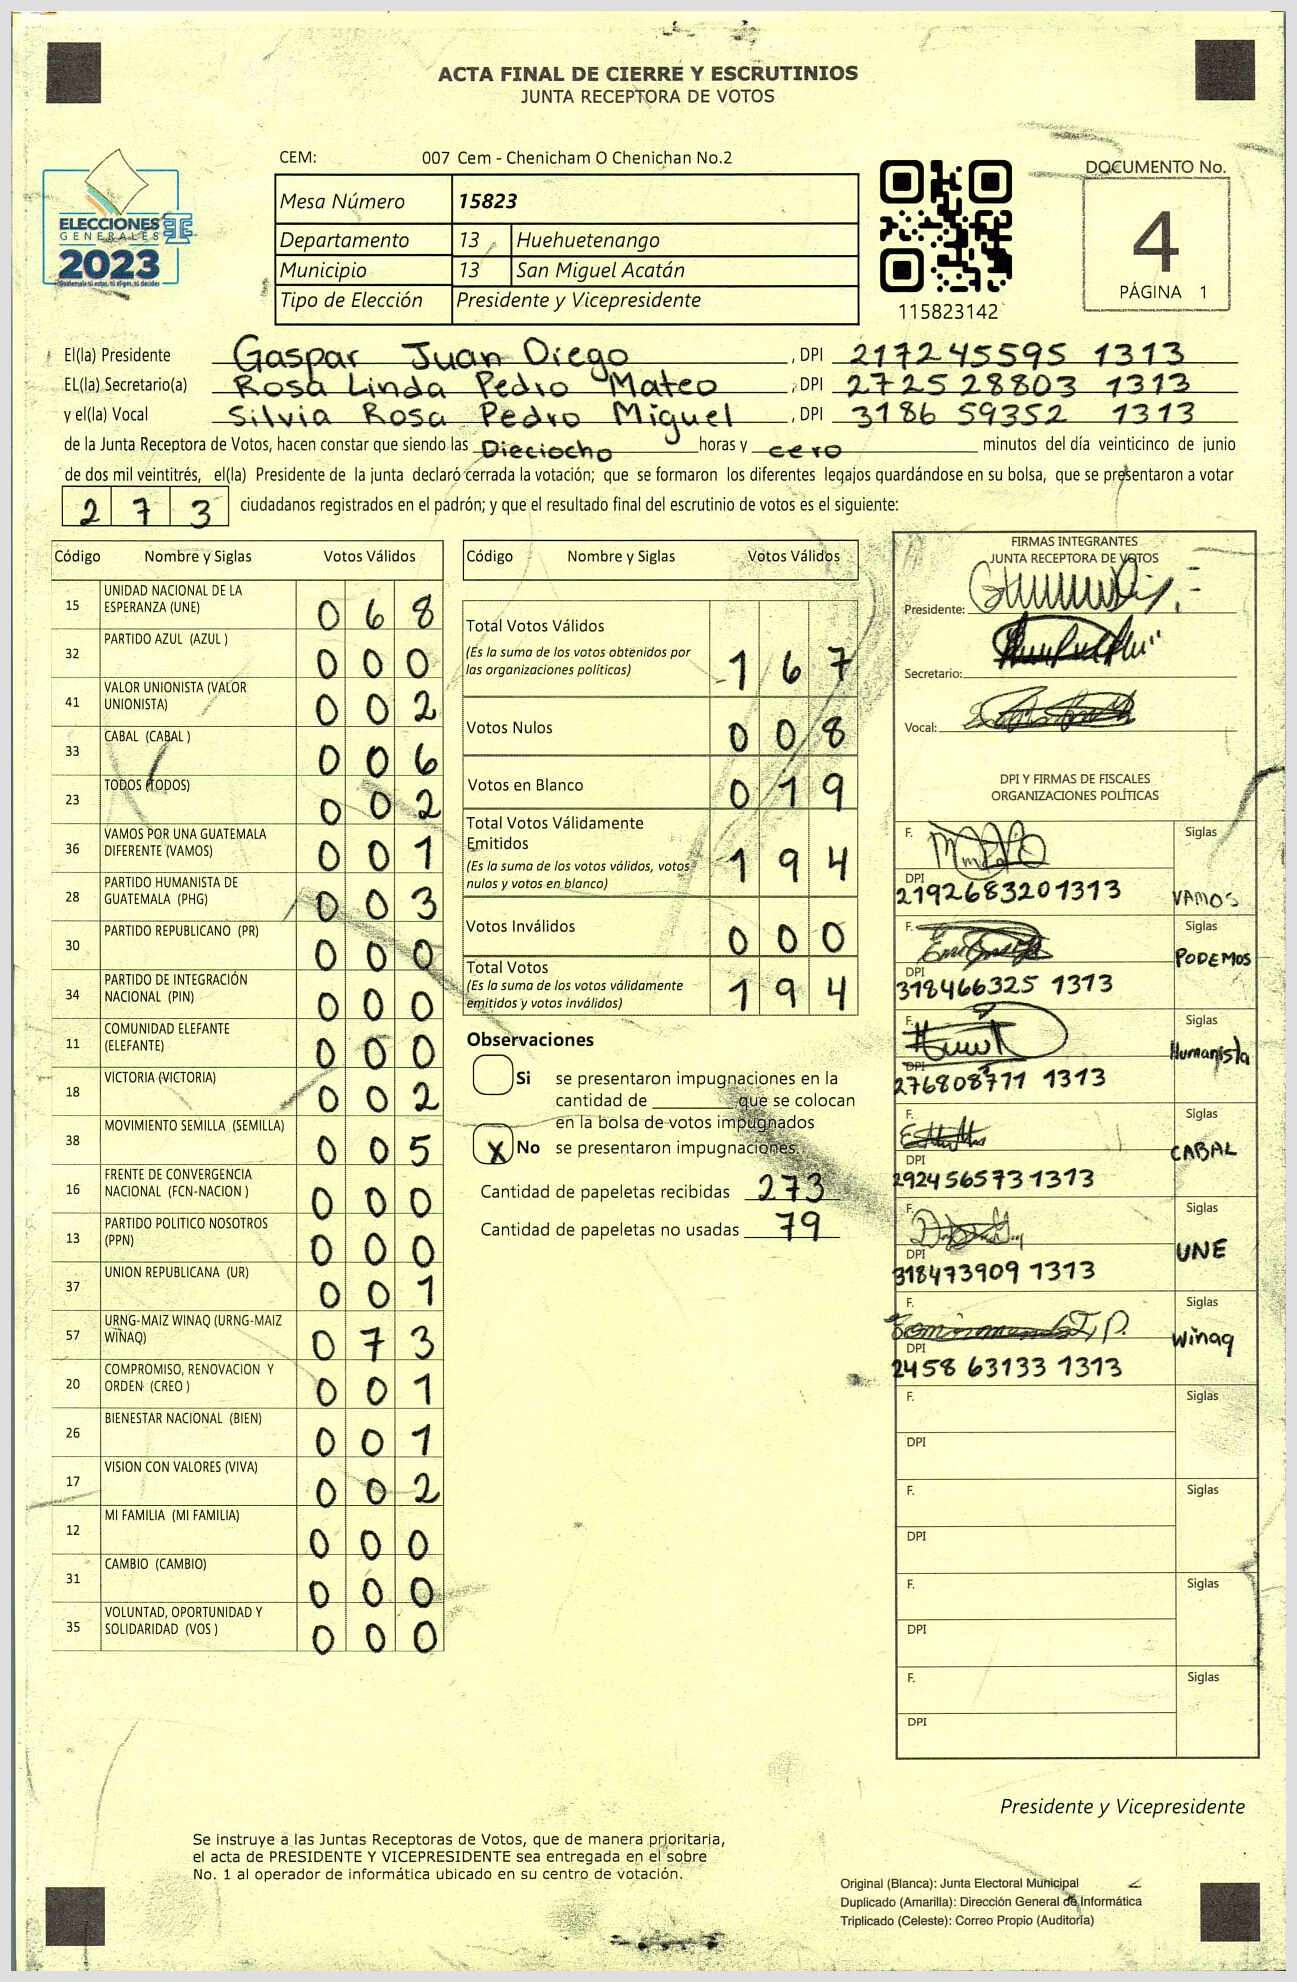 ACTA FINAL DE CIERRE Y ESCRUTINIOS
JUNTA RECEPTORA DE VOTOS
CEM: 007 Cem - Chenicham O Chenichan No.2
Mesa Número 15823
Departamento 13 Huehuetenango
Municipio 13 San Miguel Acatán
Tipo de Elección Presidente y Vicepresidente
ELECCIONES
GENERALES
2023
115823142
DOCUMENTO No.
4
PÁGINA 1
El(la) Presidente Gaspar Juan Diego , DPI 217245595 1313
EL(la) Secretario(a) Rosa Linda Pedro Mateo , DPI 2725 28803 1313
y el(la) Vocal Silvia Rosa Pedro Miguel , DPI 3186 59352 1313
de la Junta Receptora de Votos, hacen constar que siendo las Dieciocho horas y cero minutos del día veinticinco de junio
de dos mil veintitrés, el(la) Presidente de la junta declaró cerrada la votación; que se formaron los diferentes legajos guardándose en su bolsa, que se presentaron a votar
2 7 3 ciudadanos registrados en el padrón; y que el resultado final del escrutinio de votos es el siguiente:
Código Nombre y Siglas Votos Válidos
15 UNIDAD NACIONAL DE LA
ESPERANZA (UNE) 0 6 8
32 PARTIDO AZUL (AZUL ) 0 0 0
41 VALOR UNIONISTA (VALOR
UNIONISTA) 0 0 2
33 CABAL (CABAL ) 0 0 6
23 TODOS (TODOS) 0 0 2
36 VAMOS POR UNA GUATEMALA
DIFERENTE (VAMOS) 0 0 1
28 PARTIDO HUMANISTA DE
GUATEMALA (PHG) 0 0 3
30 PARTIDO REPUBLICANO (PR) 0 0 0
34 PARTIDO DE INTEGRACIÓN
NACIONAL (PIN) 0 0 0
11 COMUNIDAD ELEFANTE
(ELEFANTE) 0 0 0
18 VICTORIA (VICTORIA) 0 0 2
38 MOVIMIENTO SEMILLA (SEMILLA) 0 0 5
16 FRENTE DE CONVERGENCIA
NACIONAL (FCN-NACION ) 0 0 0
13 PARTIDO POLITICO NOSOTROS
(PPN) 0 0 0
37 UNION REPUBLICANA (UR) 0 0 1
57 URNG-MAIZ WINAQ (URNG-MAIZ
WINAQ) 0 7 3
20 COMPROMISO, RENOVACION Y
ORDEN (CREO ) 0 0 1
26 BIENESTAR NACIONAL (BIEN) 0 0 1
17 VISION CON VALORES (VIVA) 0 0 2
12 MI FAMILIA (MI FAMILIA) 0 0 0
31 CAMBIO (CAMBIO) 0 0 0
35 VOLUNTAD, OPORTUNIDAD Y
SOLIDARIDAD (VOS ) 0 0 0
Código Nombre y Siglas Votos Válidos
Total Votos Válidos
(Es la suma de los votos obtenidos por
las organizaciones políticas) 1 6 7
Votos Nulos 0 0 8
Votos en Blanco 0 19
Total Votos Válidamente
Emitidos
(Es la suma de los votos válidos, votos
nulos y votos en blanco) 1 9 4
Votos Inválidos 0 0 0
Total Votos
(Es la suma de los votos válidamente
emitidos y votos inválidos) 1 9 4
Observaciones
Si se presentaron impugnaciones en la
cantidad de ________ que se colocan
en la bolsa de votos impugnados
X No se presentaron impugnaciones.
Cantidad de papeletas recibidas 273
Cantidad de papeletas no usadas 79
FIRMAS INTEGRANTES
JUNTA RECEPTORA DE VOTOS
Presidente:
Secretario:
Vocal:
DPI Y FIRMAS DE FISCALES
ORGANIZACIONES POLÍTICAS
F. Siglas
DPI
2192683201313 VAMOS
F. Siglas
DPI PODEMOS
318466325 1313
F. Siglas
DPI Humanista
276808711 1313
F. Siglas
DPI CABAL
2924565731313
F. Siglas
DPI UNE
318473909 1313
F. Siglas
DPI Winaq
2458 63133 1313
F. Siglas
DPI
F. Siglas
DPI
F. Siglas
DPI
F. Siglas
DPI
Presidente y Vicepresidente
Se instruye a las Juntas Receptoras de Votos, que de manera prioritaria,
el acta de PRESIDENTE Y VICEPRESIDENTE sea entregada en el sobre
No. 1 al operador de informática ubicado en su centro de votación.
Original (Blanca): Junta Electoral Municipal
Duplicado (Amarilla): Dirección General de Informática
Triplicado (Celeste): Correo Propio (Auditoría)